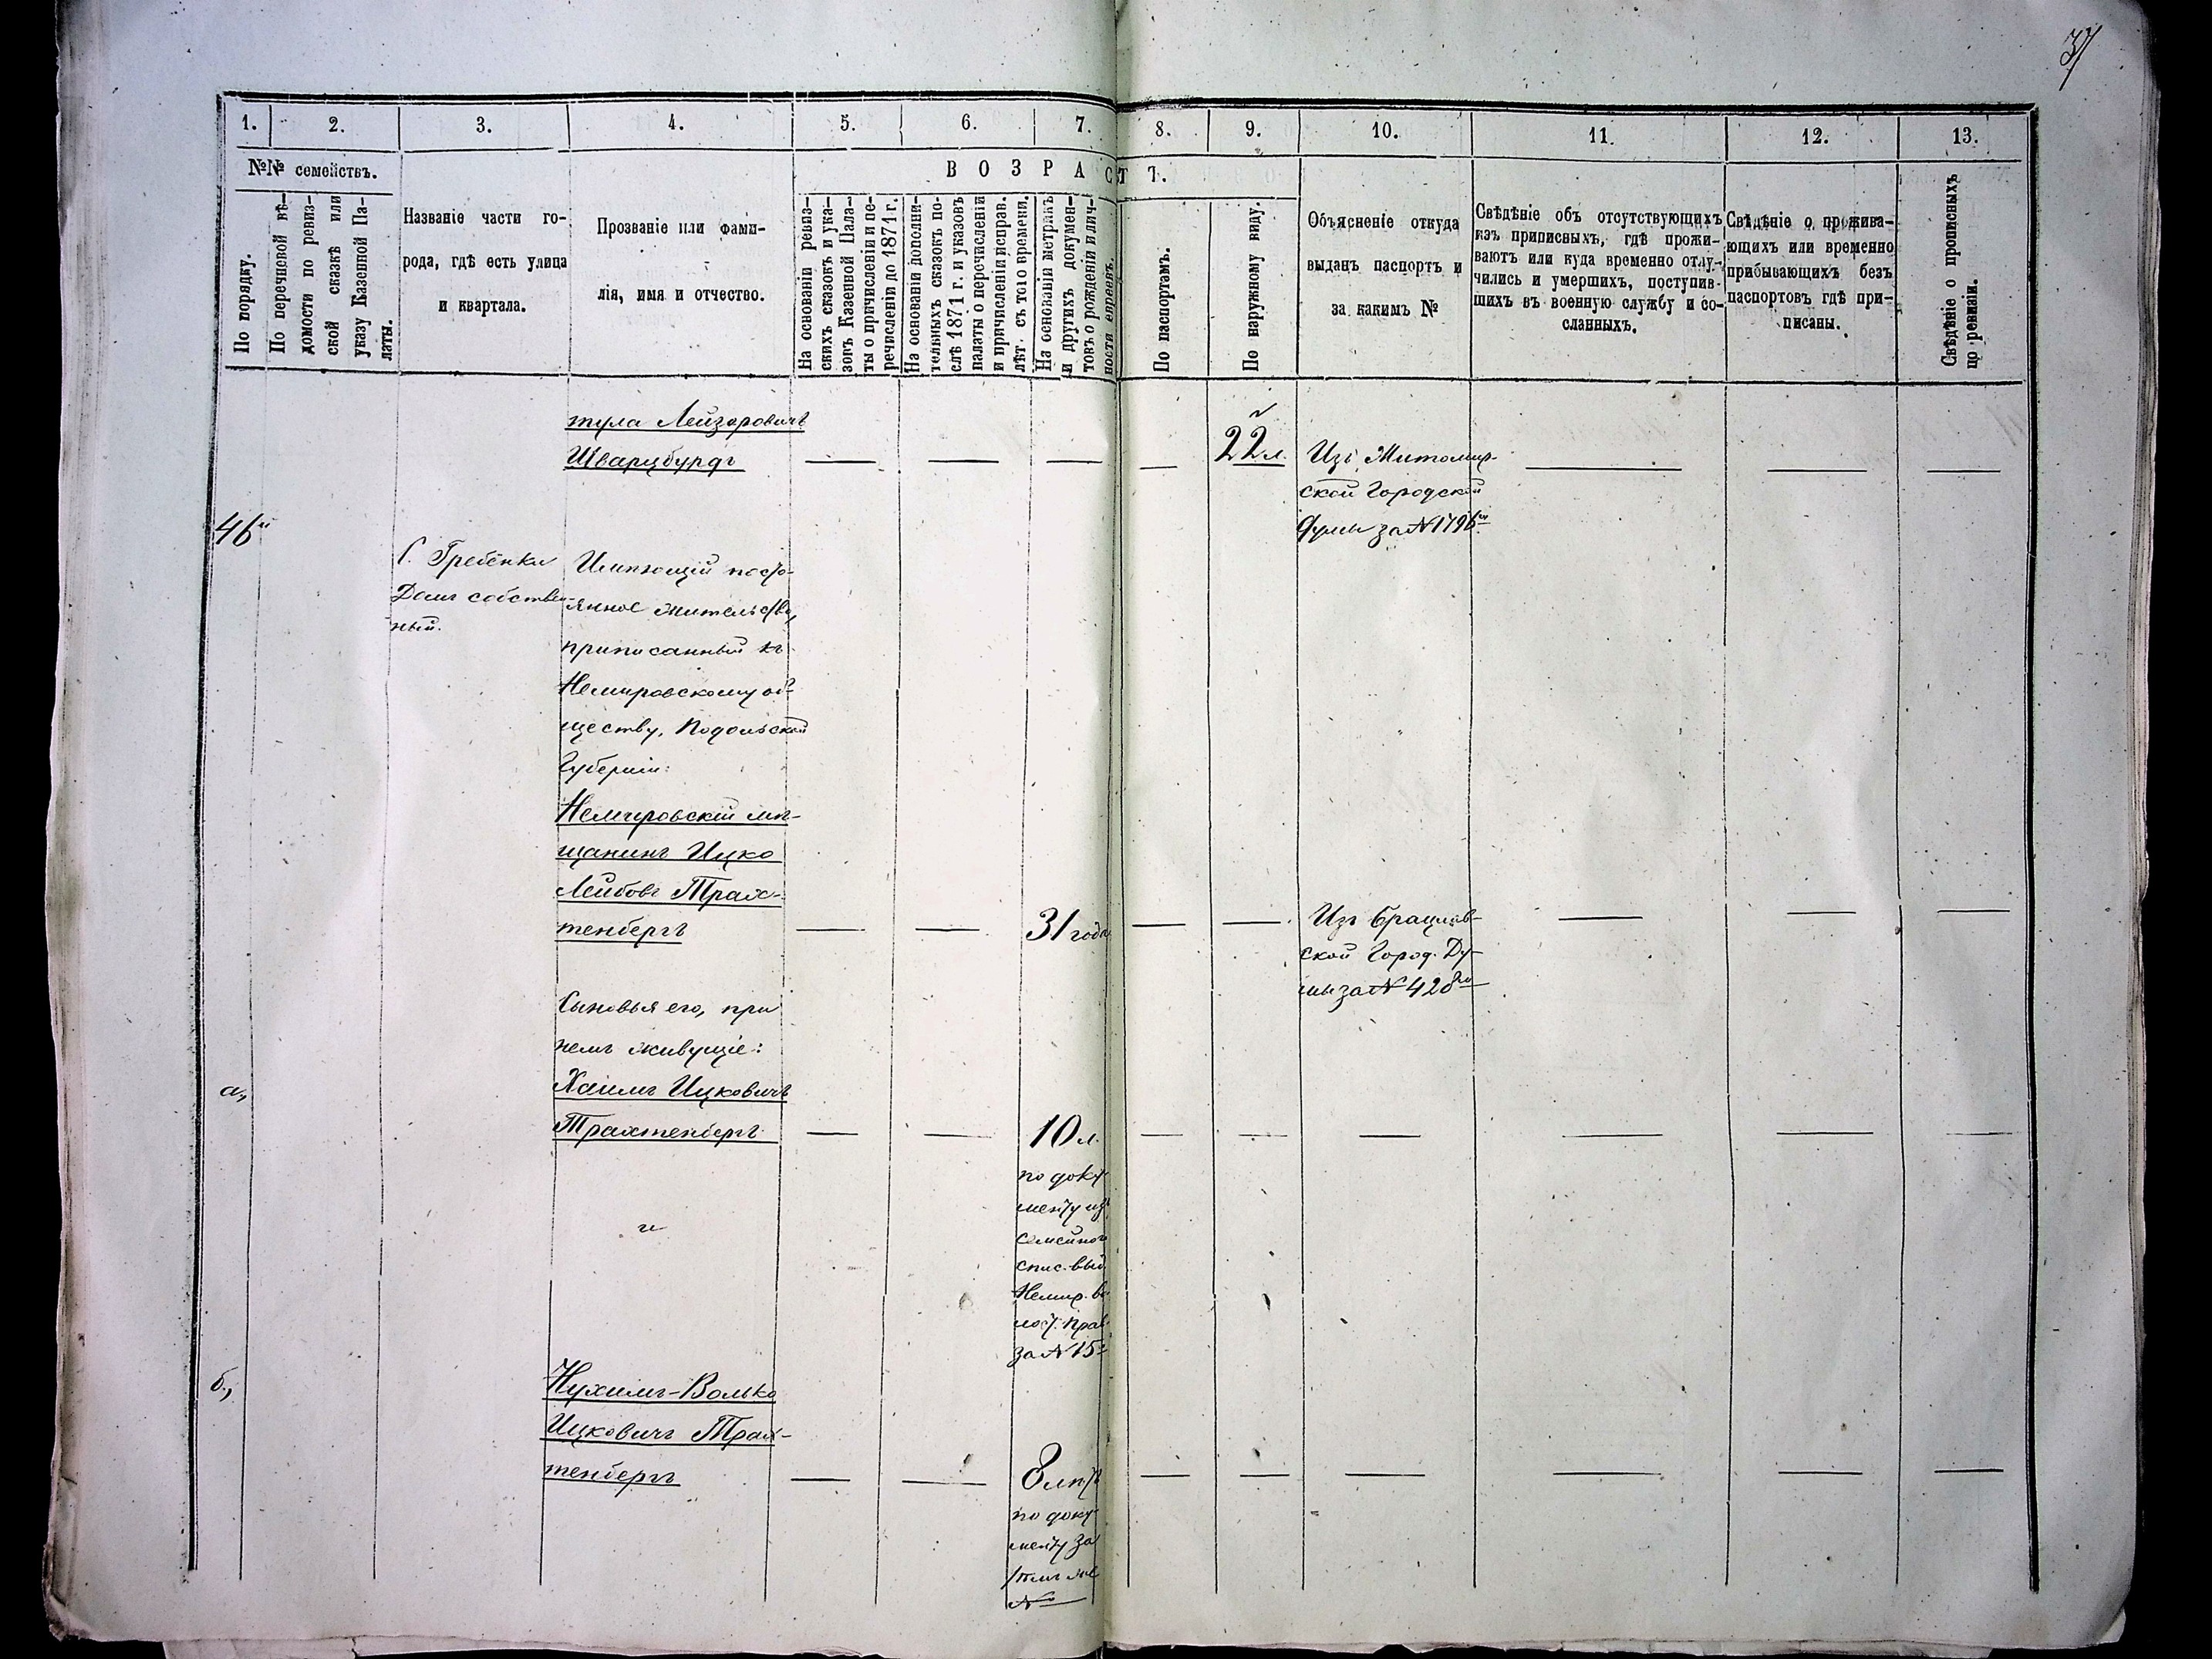 37
1. 2. 3. 4. 5. 6. 7. 8. 9. 10. 11. 12. 13.
№№ семействъ.
ВОЗРАСТЪ.
По порядку.
По поречневой вѣ-
домости по ревиз-
ской сказкѣ или
указу Казенной Па-
латы.
Названіе части го-
рода, гдѣ есть улица
и квартала.
Прозваніе или фами-
лія, имя и отчество.
На основаніи ревиз-
скихъ сказокъ и ука-
зовъ Казенной Пала-
ты о причисленіи и пе-
речисленіи до 1871 г.
На основаніи дополни-
тельныхъ сказокъ по-
слѣ 1871 г. и указовъ
палаты о перечисленіи
и причисленіи исправ.
лѣт. съ того времени.
На основаніи метрикъ
и другихъ докумен-
товъ о рожденіи и лич-
ности евреевъ.
По паспортамъ.
По наружному виду.
Объясненіе откуда
выданъ паспортъ и
за какимъ №
Свѣдѣніе объ отсутствующихъ
изъ приписныхъ, гдѣ прожи-
ваютъ или куда временно отлу-
чились и умершихъ, поступив-
шихъ въ военную службу и со-
сланныхъ.
Свѣдѣніе о прожива-
ющихъ или временно
прибывающихъ безъ
паспортовъ гдѣ при-
писаны.
Свѣдѣніе о прописныхъ
по ревизіи.
тула Лейзеровичъ
Шварцбурдъ
22 л.
Изъ Житомир-
ской Городской
Думы за № 1796мъ
46й
С. Гребенки
Домъ собствен-
ный.
Имѣющій посто-
янное жительство,
приписанный къ
Немировскому об-
ществу, Подольской
Губерніи:
Немировскій мѣ-
щанинъ Ицко
Лейбовъ Трах-
тенбергъ
31 года
Изъ Брацлав-
ской Город. Ду-
мы за № 428мъ
Сыновья его, при
немъ живущіе:
а,
Хаимъ Ицковичъ
Трахтенбергъ
10 л.
по доку-
менту изъ
семейного
спис. выд.
Немир. во-
лост. Прав.
за № 15
и
б,
Нухимъ-Волько
Ицковичъ Трах-
тенбергъ
8 лѣтъ
по доку-
менту за
тѣмъ же
№